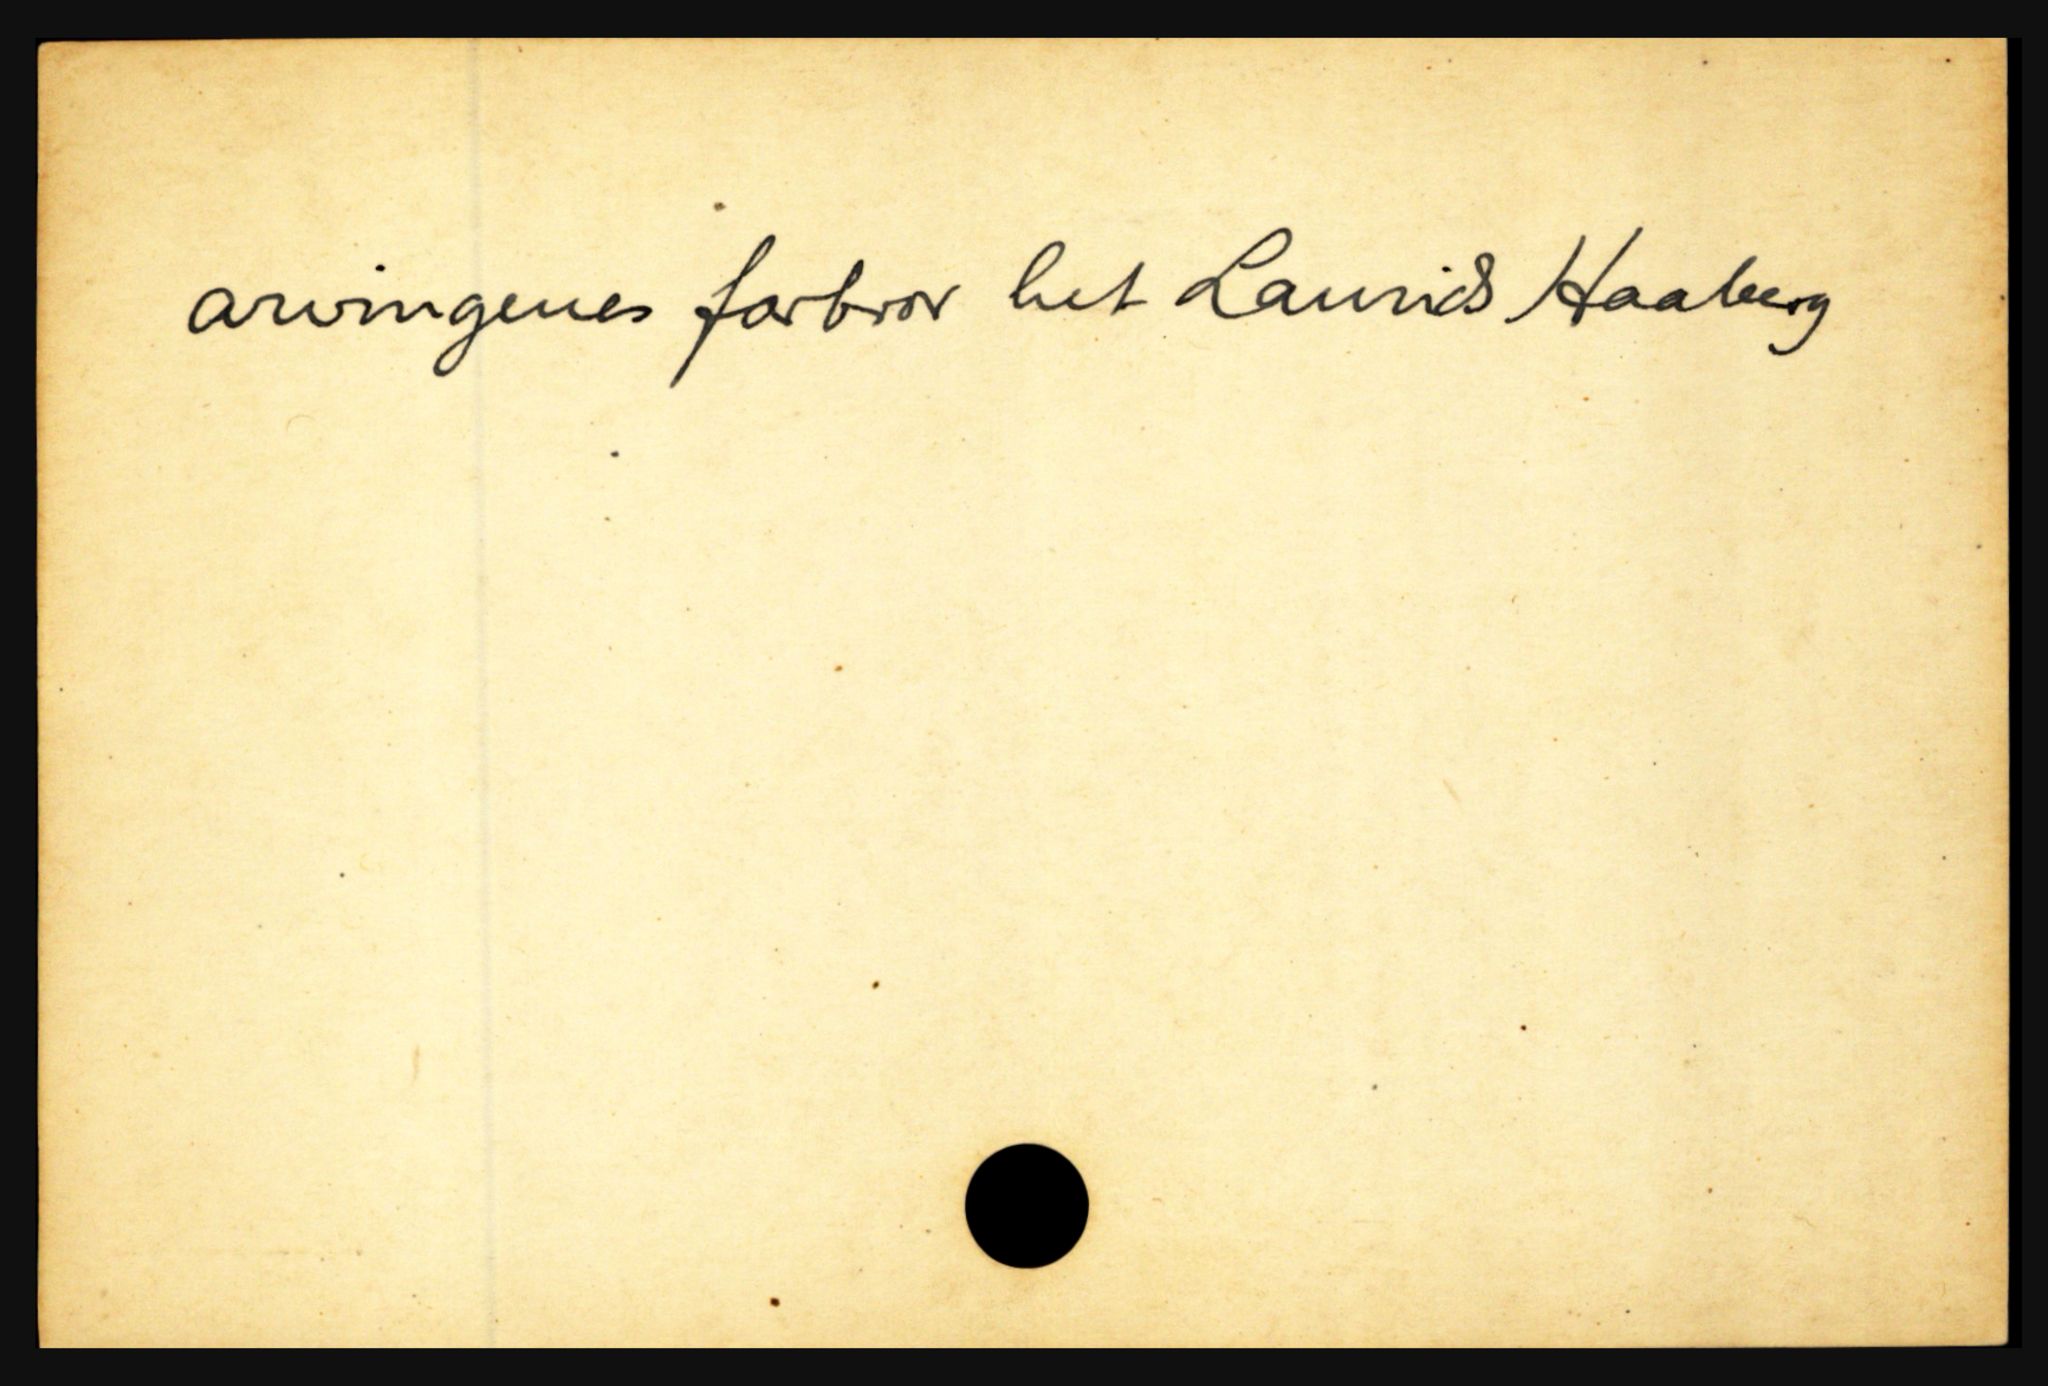 arvingenes farbror het Laurids Haaberg